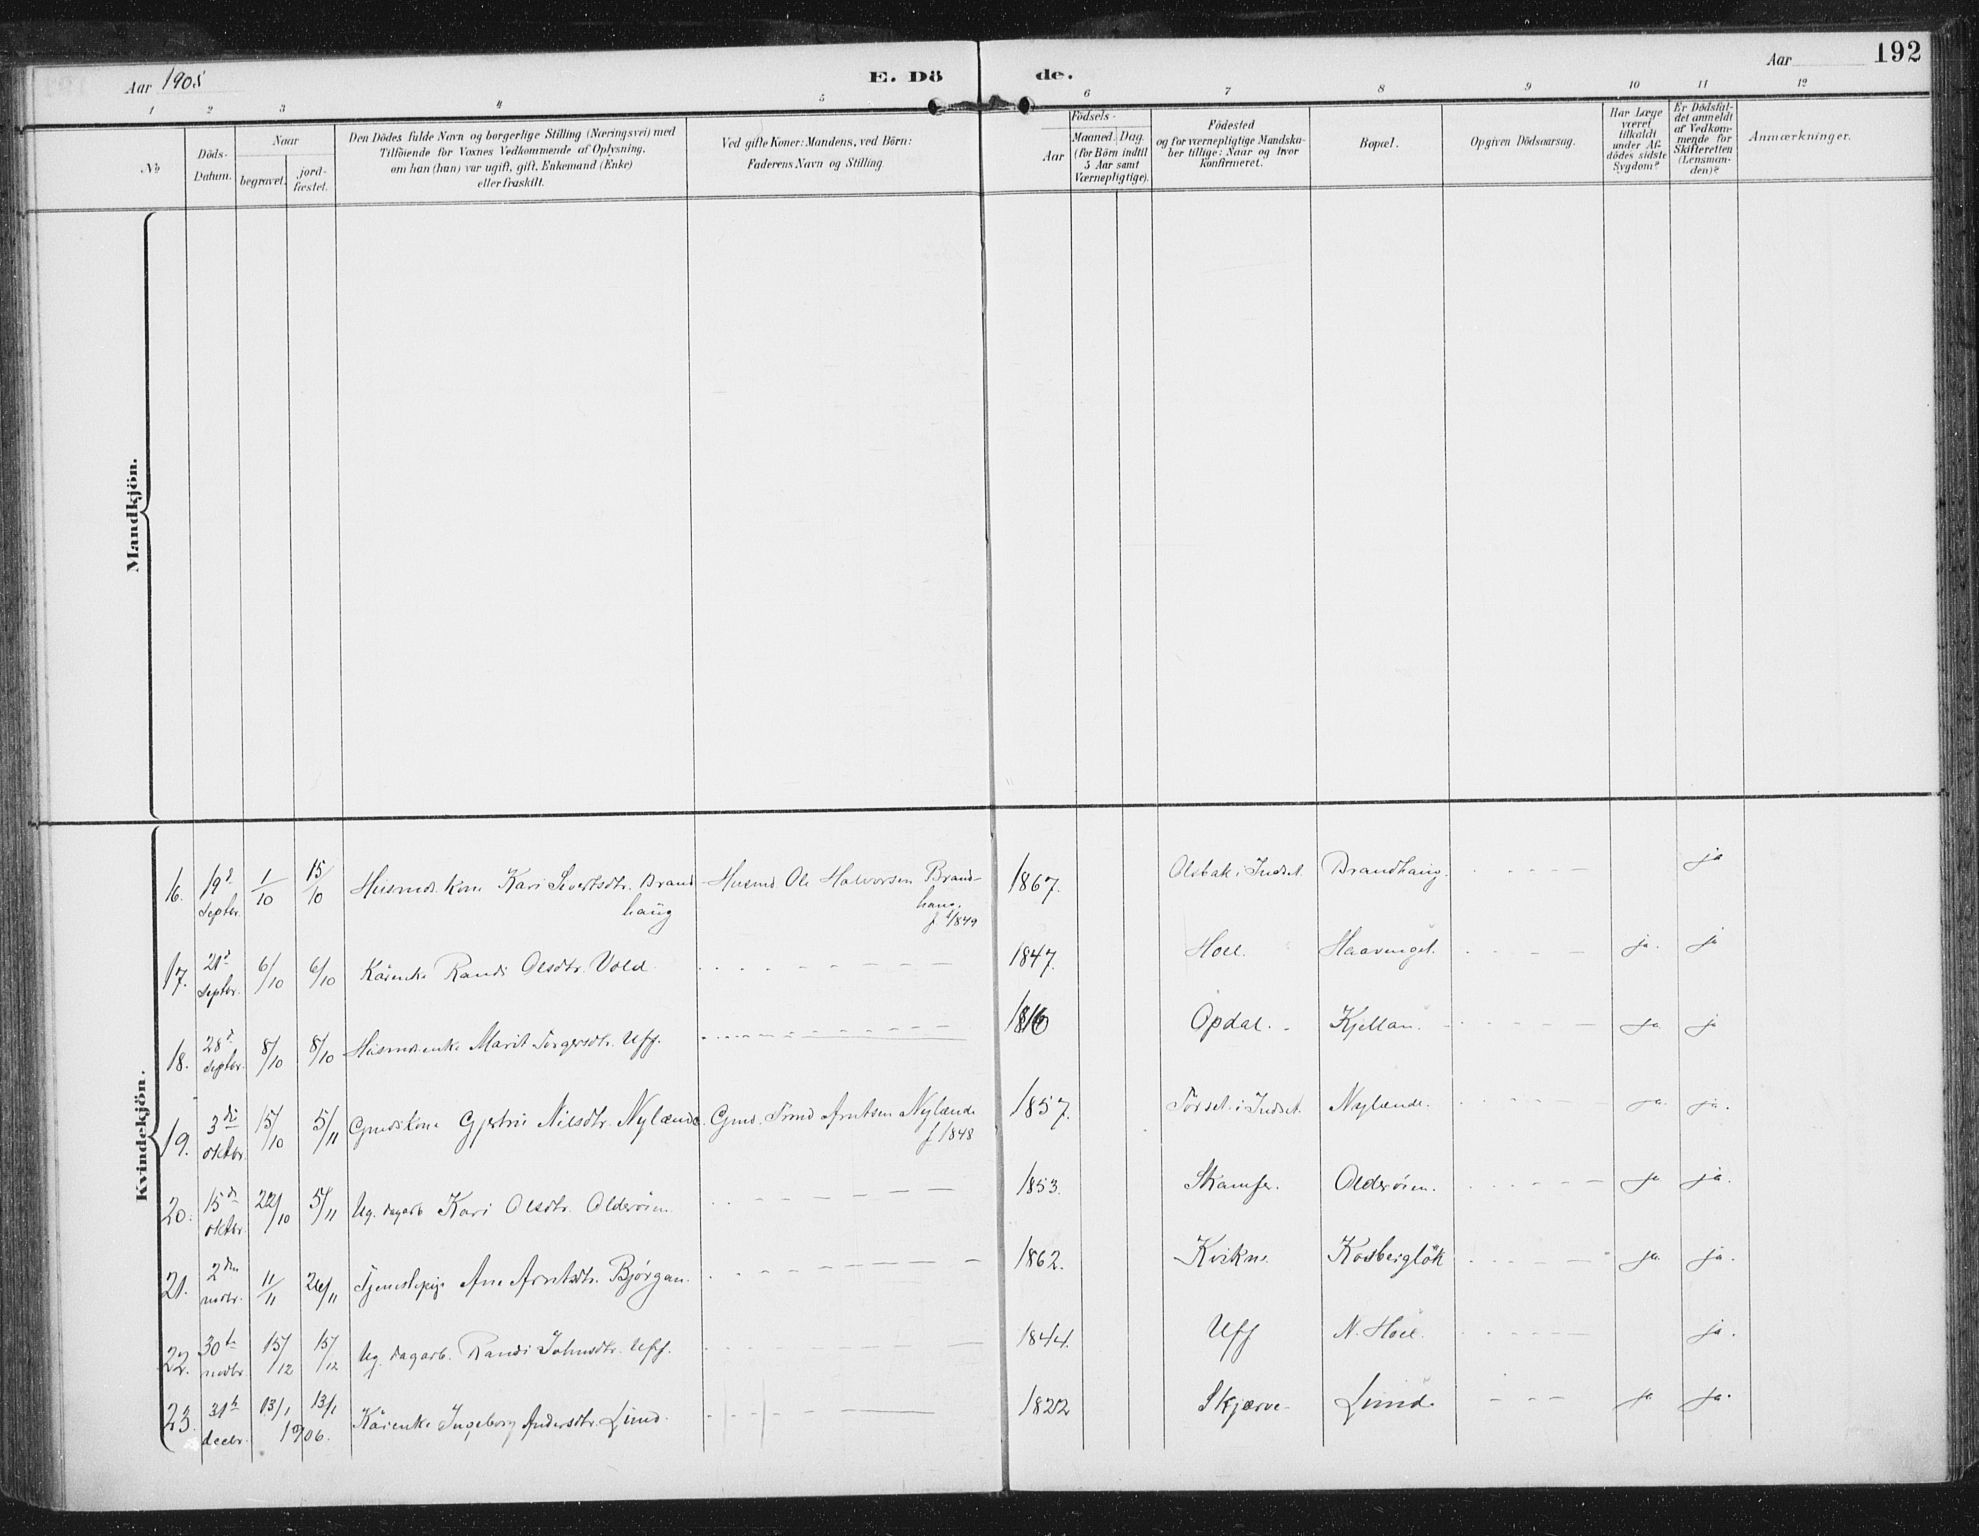 Aar 1905
E. Dö
de.
Aar
192
1 2 3 4 5 6 7 8 9 10 11 12
No
Döds-
Datum.
Naar
begravet.
jord-
fæstet.
Den Dödes fulde Navn og borgerlige Stilling (Næringsvei) med
Tilföiende for Voxnes Vedkommende af Oplysning,
om han (hun) var ugift, gift, Enkemand (Enke)
eller fraskilt.
Ved gifte Koner: Mandens, ved Börn:
Faderens Navn og Stilling
Födsels-
Aar
Maaned. Dag.
(for Börn indtil
5 Aar samt
Værnepligtige).
Födested
og for værnepligtige Mandska-
ber tillige: Naar og hvor
Konfirmeret.
Bopæl.
Opgiven Dödsaarsag.
Har Læge
været
tilkaldt
under Af-
dödes sidste
Sygdom?
Er Dödsfal-
det anmeldt
af Vedkom-
mende for
Skifteretten
(Lensman-
den)?
Anmærkninger.
Mandkjön.
Kvindekjön.
16. 19d Septbr. 1/10 15/10 Husmds. kone Kari Sivertsdtr. Brand- Husmd. Ole Halvorsen Brand- 1867. Olsbak i Indset Brandhaug. ja
haug haug.
f 1849
17. 21d Septbr. 6/10 6/10 Kårenke Randi Olsdtr. Vold. 1847. Hoel. Haavenget. ja. ja
18. 28d Septbr. 8/10 8/10 Husmdenke Marit Torgersdtr. Uff. 1816 Opdal. Kjellan. ja ja
19. 3die oktbr. 15/10 5/11 Gmdskone Gjertru Nilsdtr. Nylænde Gmd. Trond Arntsen Nylænde 1857. Torset i Indset. Nylænde. ja. ja.
f 1848
20. 15de oktbr. 22/10 5/11 Ug. dagarb Kari Olsdtr. Olderöien 1853. Skamfer. Olderöien. ja ja.
21. 2den novbr. 11/11 26/11 Tjenestepige Ane Arntsdtr. Bjørgan. 1862. Kvikne. Kosbergløk ja. ja.
22. 30te novbr 15/12 15/12 Ug. dagarb. Randi Johnsdtr. Uff. 1844. Uff N. Hoel. ja.
23. 31te decbr. 13/1 13/1 Kårenke Ingeborg Andersdtr. Lund. 1822 Skjærve Lund. ja ja.
1906.